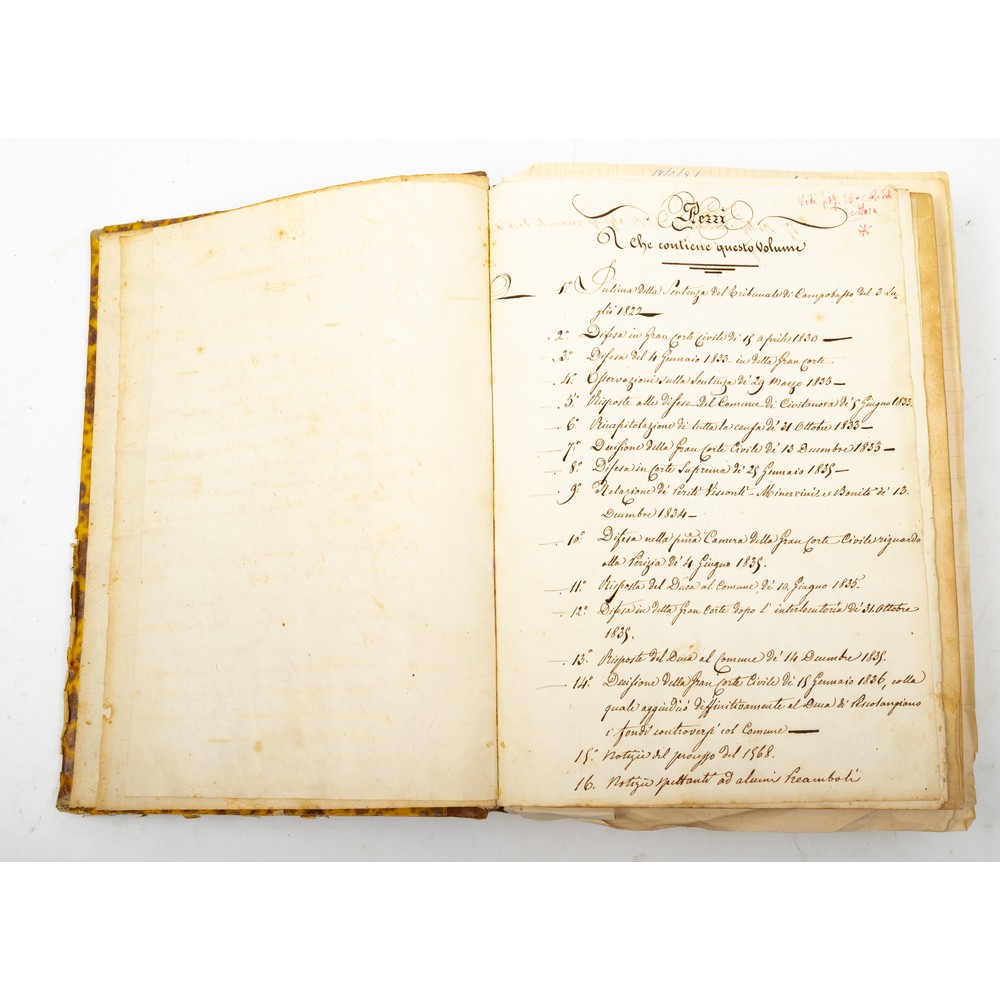 Pezzi
Che contiene questo Volume
1.° Intima della Sentenza del Tribunale di Campobasso del 3 Lu-
glio 1822
2.° Difesa in Gran Corte Civile de' 15 Aprile 1830
3.° Difesa del 4 Gennaio 1833 in detta Gran Corte
4.° Osservazioni sulla Sentenza de' 29 Marzo 1833
5.° Risposte alle difese del Comune di Civitanova de' 5 Giugno 1833.
6.° Ricapitolazione di tutta la causa de' 31 Ottobre 1833
7.° Decisione della Gran Corte Civile de' 13 Decembre 1833
8.° Difesa in Corte Suprema de' 25 Gennaio 1835
9.° Relazione de' Periti Visconti - Minervini e Bonito de' 13.
Decembre 1834
10.° Difesa nella Camera della Gran Corte Civile riguardo
alla Perizia de' 4 Giugno 1835.
11.° Risposta del Duca al Comune, de' Giugno 1835.
12.° Difesa in detta Gran Corte dopo l'interlocutoria de' 31 Ottobre
1835.
13.° Risposte del Duca al Comune de' 14 Decembre 1835.
14.° Decisione della Gran Corte Civile de' 15 Gennaio 1836, colla
quale aggiudicò diffinitivamente al Duca di Pescolangiano
i fondi controversi col Comune
15.° Notizie del processo del 1568.
16. Notizie spettanti ad alcuni Preamboli